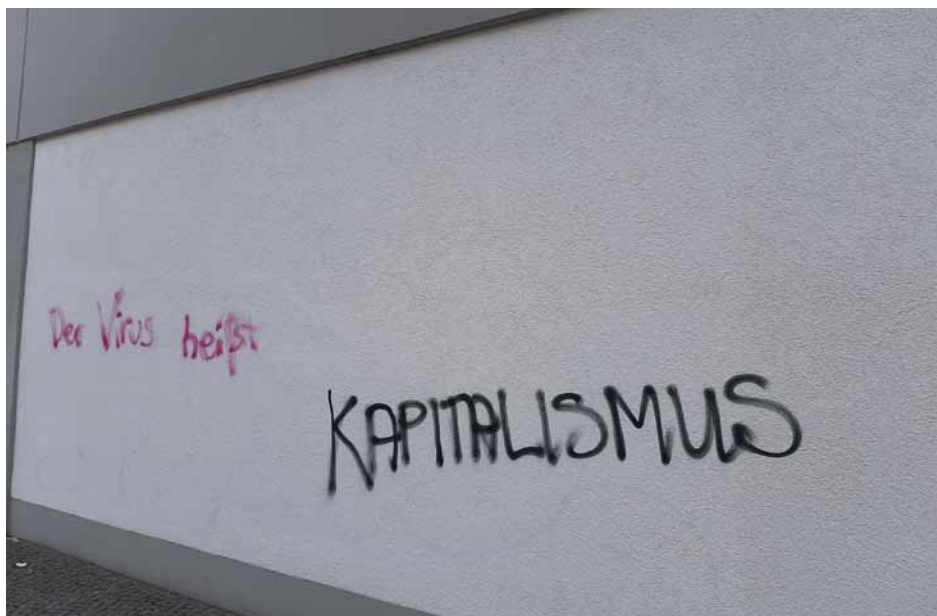 Der Virus heißt
KAPITALISMUS